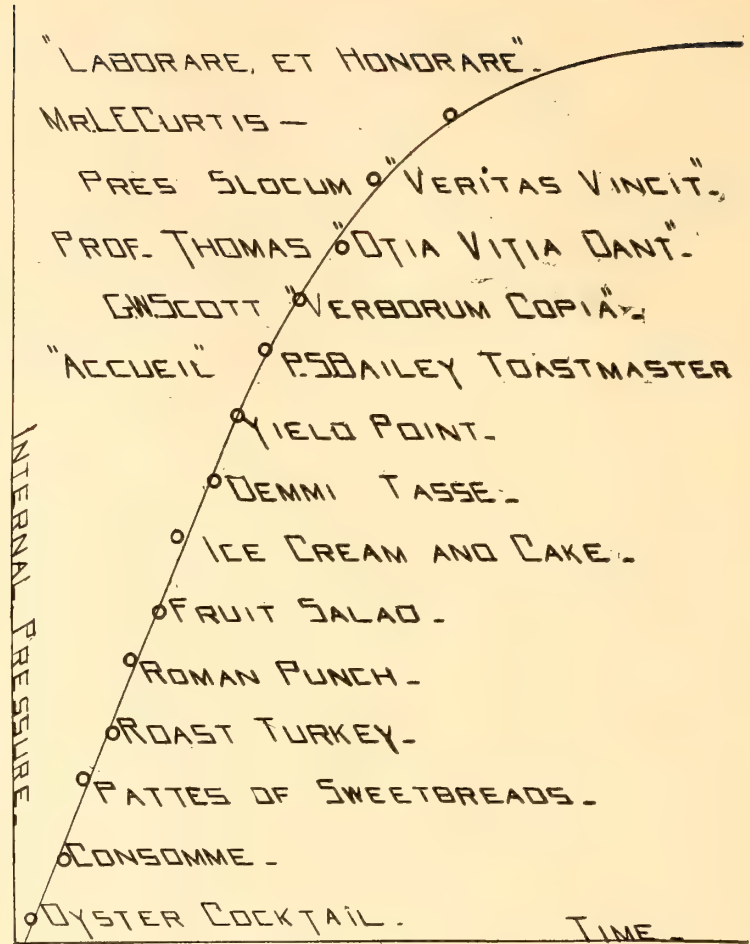 "LABORARE, ET HONORARE".
MR.L.E.CURTIS —
PRES SLOCUM "VERITAS VINCIT".
PROF. THOMAS "OTIA VITIA DANT".
G.W.SCOTT "VERBORUM COPIA".
"ACCUEIL" P.S.BAILEY TOASTMASTER
YIELD POINT.
DEMMI TASSE.
ICE CREAM AND CAKE.
FRUIT SALAD.
ROMAN PUNCH.
ROAST TURKEY.
PATTES OF SWEETBREADS.
CONSOMME.
OYSTER COCKTAIL.
TIME.
INTERNAL PRESSURE.